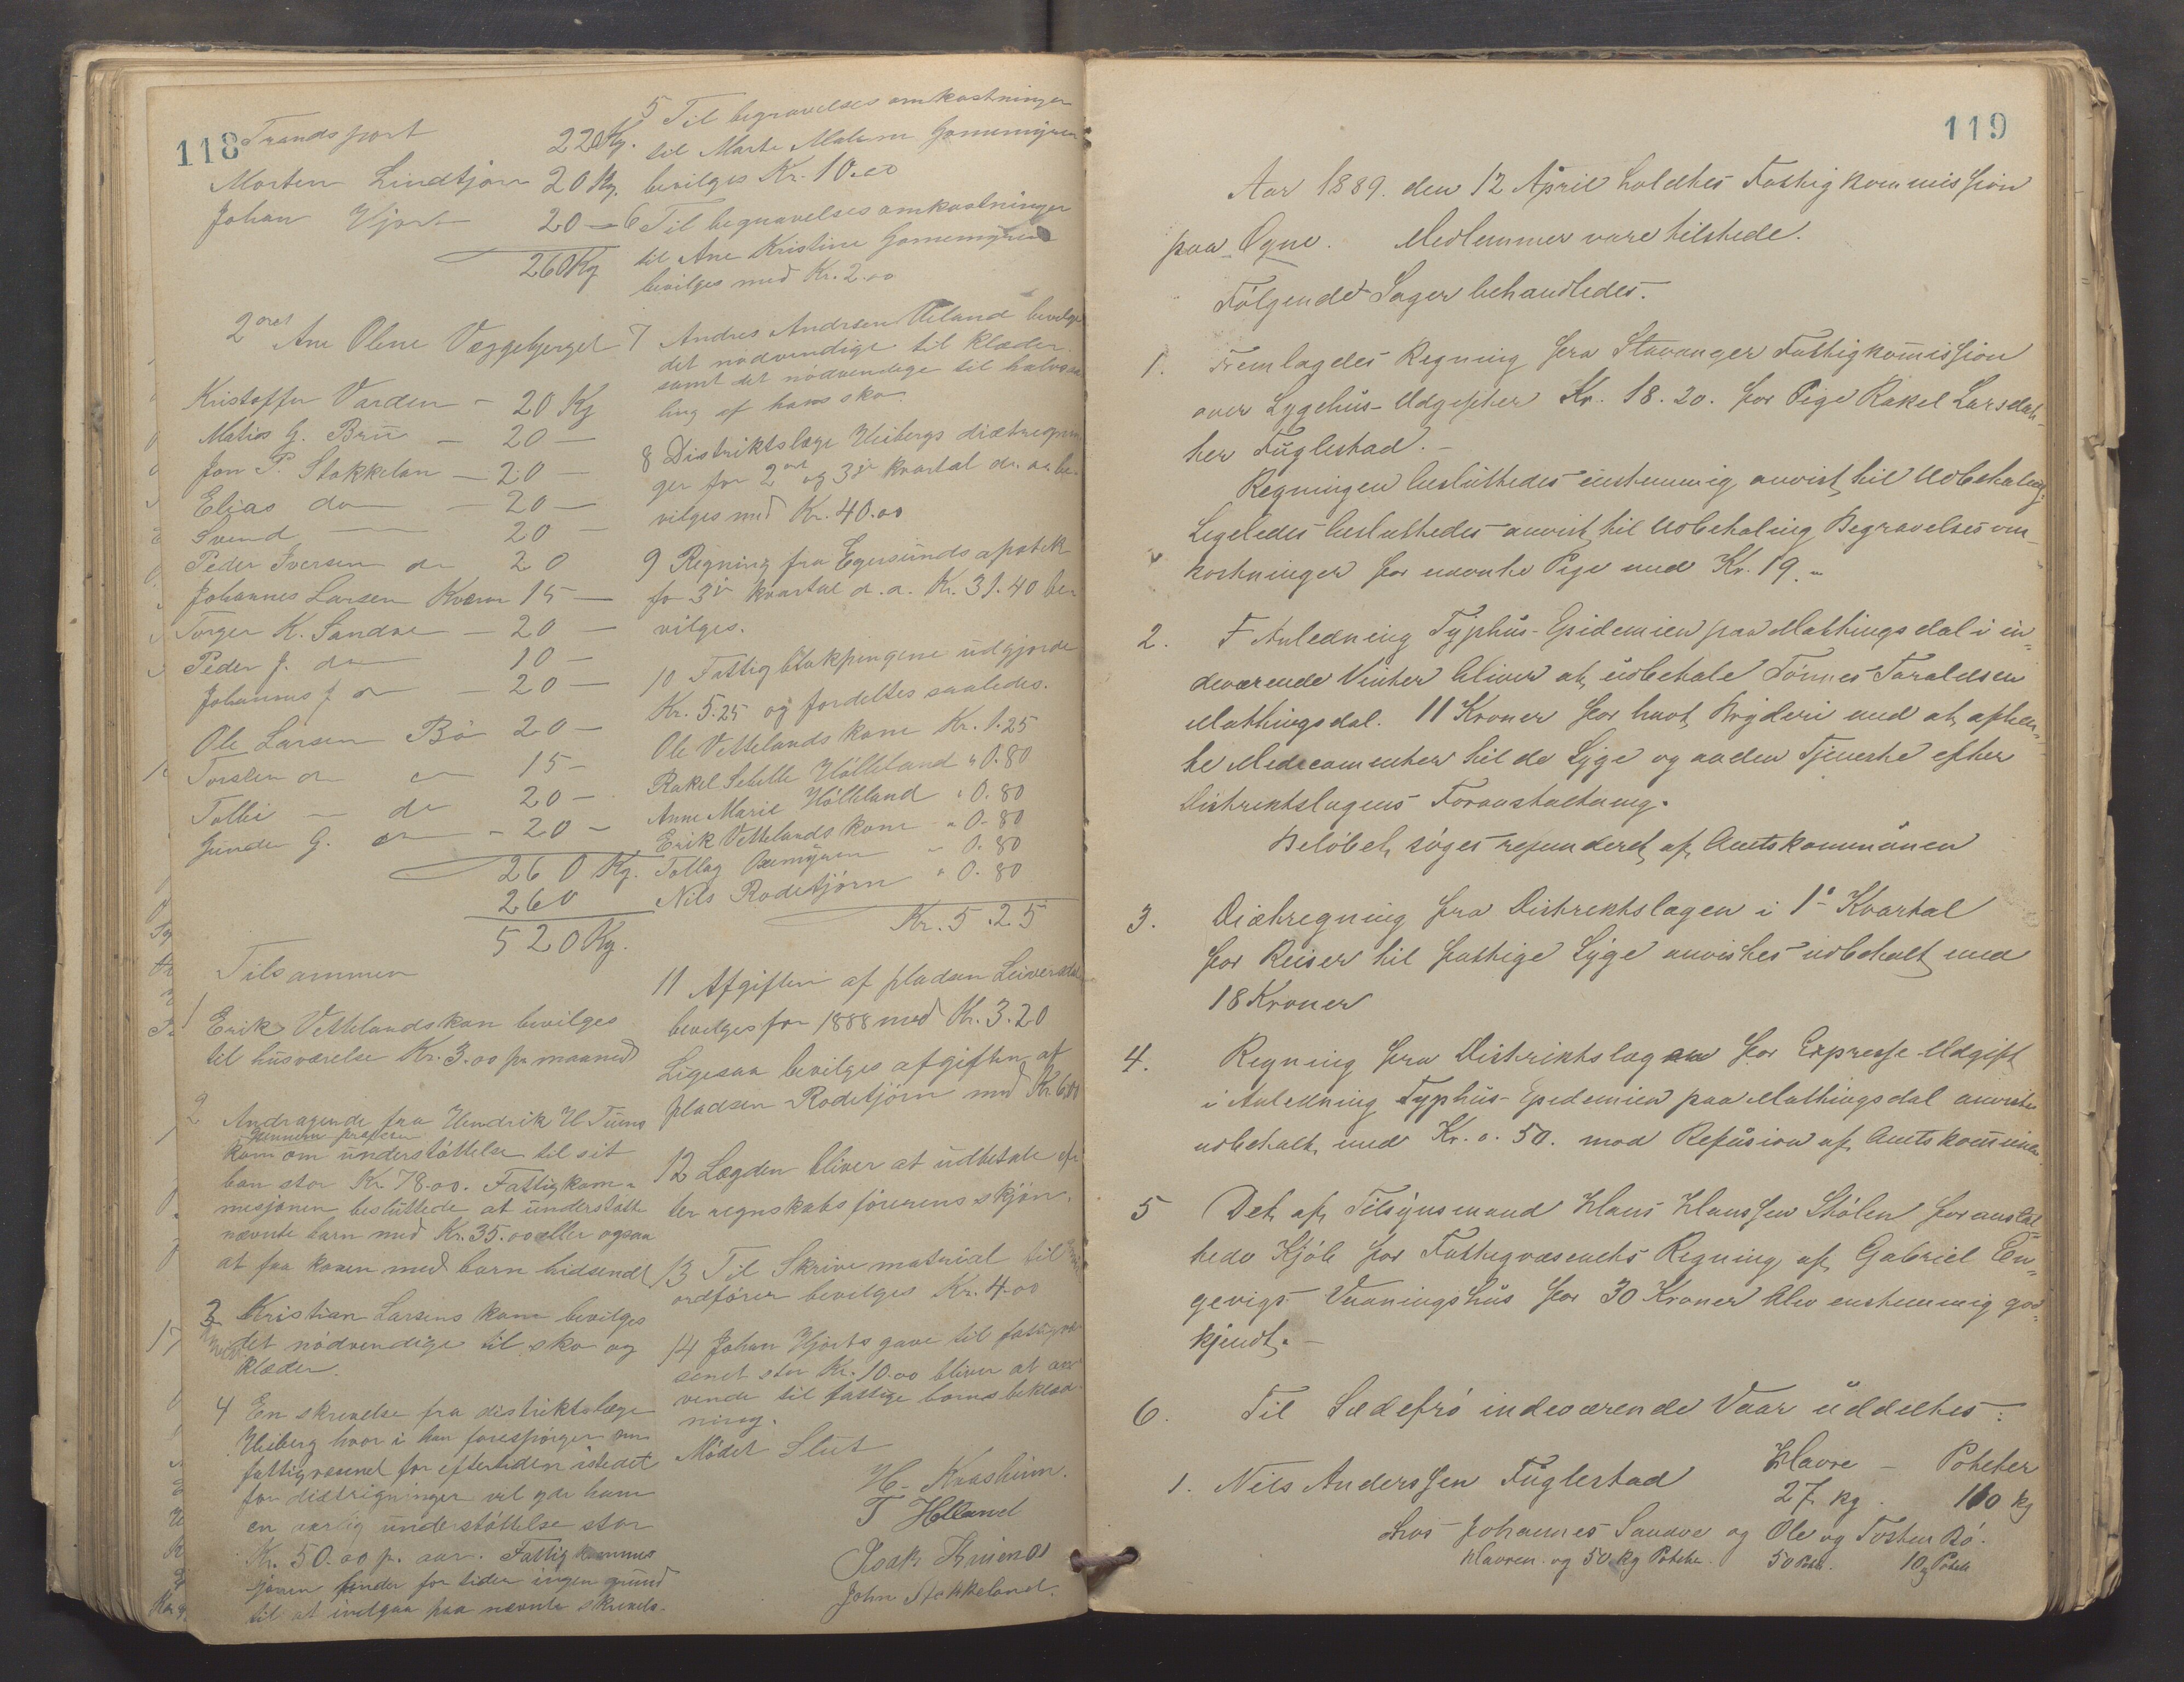 118 Trandsport 220 Kg.
Morten Lindtjørn 20 Kg.
Johan Hjort 20 —
260 Kg
2det Ane Olene Væggebjerget
Kristoffer Varden — 20 Kg
Matias G. Bru — 20 —
Jon P. Stokkelan — 20 —
Elias do — 20 —
Svend — 20 —
Peder Iversen do 20
Johannes Larsen Kverm 15 —
Torger K. Sandve — 20 —
Peder J. do 10 —
Johannes J. do — 20 —
Ole Larsen Bö 20 —
Torsten do 15 —
Tollei — do 20 —
Gunder G. do — 20 —
260 Kg.
260
520 Kg.
Tilsammen
1 Erik Vettelandskon bevilges
til husværelse Kr. 3.00 pr maaned
2 Andragende fra Hendrik H. Tuens
kone om understöttelse til sit
barn stor Kr. 78.00. Fattigkom-
misjonen besluttede at understötte
nævnte barn med Kr. 35.00 eller ogsaa
at faa konen med barn hidsendt
3 Kristian Larsens kone bevilges
det nödvendige til sko og
klæder.
4 En skrivelse fra distriktslæge
Heiberg hvor i han forespörger om
fattigvæsenet for eftertiden istedet
for diætregninger vil yde ham
en aarlig understöttelse stor
Kr. 50.00 p. aar. Fattigkommis
jonen finder for tiden ingen grund
til at indgaa paa nævnte skrivelse.
5 Til begravelsesomkostninger
til Marte Malene Gomemyren
bevilges Kr. 10.00
6 Til begravelsesomkostninger
til Ane Kristine Gomemyren
bevilges med Kr. 2.00
7 Andres Andrsen Ueland bevilges
det nødvendige til klæder
samt det nödvendige til halvsaa
ling af hans sko.
8 Distriktslæge Heibergs diætregnin
ger for 2det og 3die kvartal d. a. be-
vilges med Kr. 40.00
9 Regning fra Egersunds apotek
for 3die kvartal d.a. Kr. 31.40 be-
vilges.
10 Fattigblokpengene udgjorde
Kr. 5.25 og fordeltes saaledes.
Ole Vettelands kone Kr. 1.25
Rakel Sebille Hölleland " 0.80
Anne Marie Hölleland " 0.80
Erik Vettelands kone " 0.80
Tollag Oremyren " 0.80
Nils Rodetjörn " 0.80
Kr. 5.25
11 Afgiften af pladsen
bevilges for 1888 med Kr. 3.20
Ligesaa bevilges afgiften af
pladsen Rodetjörn med Kr. 6.00
12 Lægden bliver at udbetale ef
ter regnskabsförerens skjön.
13 Til Skrivematerial til
ordförer bevilges Kr. 4.00
14 Johan Hjorts gave til fattigvæ
senet stor Kr. 10.00 bliver at an
vende til fattige börns beklæd-
ning.
Mödet Slut
H. Kvashiim.
T Hølland
Isak Bruenes
John Stokkeland.
119
Aar 1889. den 12 April holdtes Fattigkommission
paa Ogne. Medlemmer vare tilstede.
Fölgende Sager behandledes.
1. Fremlagdes Regning fra Stavanger Fattigkommission
over Sygehus-Udgifter Kr. 18.20. for Pige Rakel Larsdat-
ter Fuglestad. —
Regningen besluttedes enstemmig anvist til Udbetaling.
Ligeledes besluttedes anvist til Udbetaling Begravelsesom-
kostninger for nævnte Pige med Kr. 19.-
2. I Anledning Typhus-Epidemien paa Mattingsdal i in-
deværende Vinter bliver at udbetale Tönnes Taraldsen
Mattingsdal. 11 Kroner for havt Bryderi med at afhen-
te Medecamenter til de Syge og anden Tjeneste efter
Distriktslægens Foranstaltning.
Belöbet söges refunderet af Amtskommunen
3. Diætregning fra Distriktslægen i 1ste Kvartal
for Reiser til fattige Syge anvistes udbetalt med
18 Kroner
4. Regning fra Distriktslægen for Expresse-Udgift
i Anledning Typhus-Epidemien paa Mathingsdal anvistes
udbetalt med Kr. 0.50. mod Refusion af Amtskommunen
5 Det af Tilsynsmand Klaus Klaussen Stölen foranstal-
tede Kjöb for Fattigvæsenets Regning af Gabriel En-
gevigs Vaaningshus for 30 Kroner blev enstemmig god-
kjendt. —
6. Til Sædefrö indeværende Vaar uddeltes:
Havre — Poteter
1. Nils Anderssen Fuglestad 27 kg. 160 kg
hos Johannes Sandve og Ole og Tosten Bö.
Havren og 50 kg Poteter. 50 Pote. 10 Potete